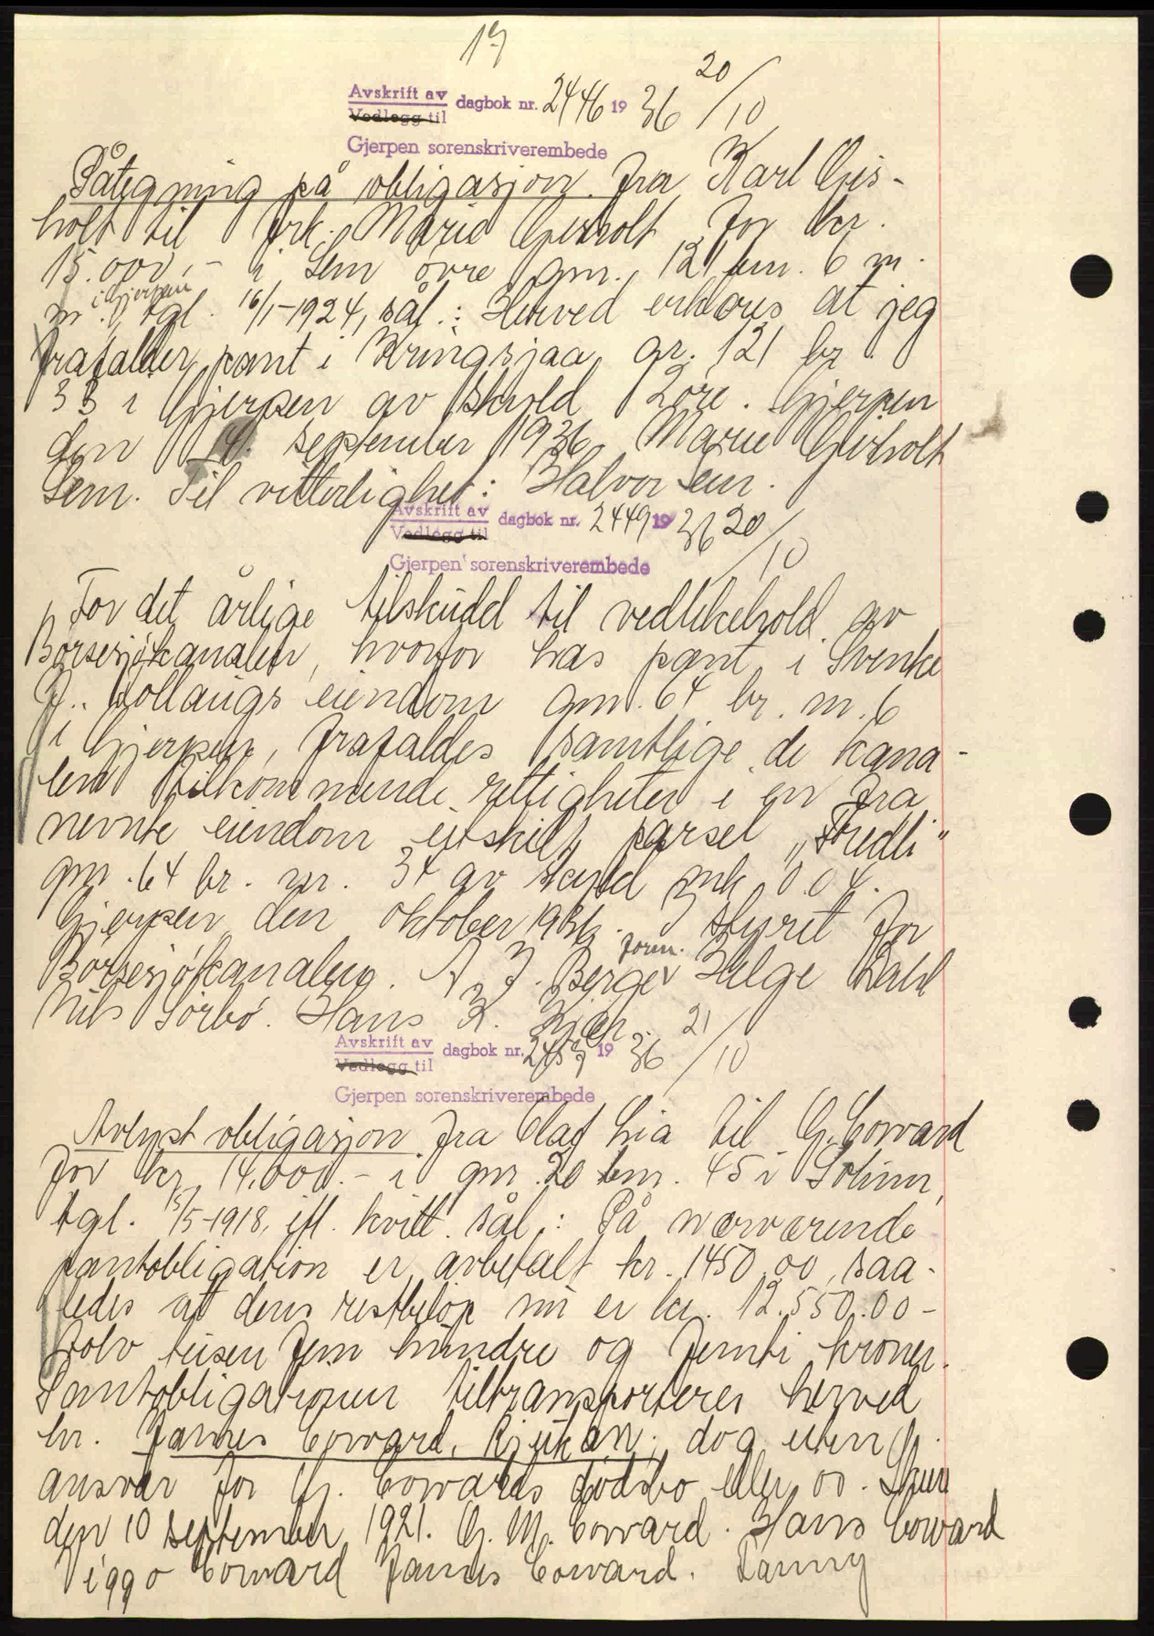 19
Avskrift av
Vedlegg til dagbok nr. 2446 1936 20/10
Gjerpen sorenskriverembede
Påtegning på obligasjon fra Karl Gis-
holt til frk. Marie Gisholt for kr.
15.000,- i Sem øvre gnr. 121 bnr. 6 m.
m. i Gjerpen, tgl. 16/1-1924, sål.: Herved erklæres at jeg
frafalder pant i Kringsjaa, gr. 121 br
33 i Gjerpen av skyld 2 øre. Gjerpen
den 4. september 1936. Marie Gisholt
Sem. Til vitterlighet: Halvor Sem.
Avskrift av
Vedlegg til dagbok nr. 2449 1936 20/10
Gjerpen sorenskriverembede
For det årlige tilskudd til vedlikehold av
Børsesjøkanalen, hvorfor has pant i Svenke
P. Bollaugs eiendom gnr. 64 br. nr. 6
i Gjerpen, frafaldes samtlige de kana-
len tilkommende rettigheter i en fra
nevnte eiendom utskilt parsel „Fredli"
gnr. 64 br. nr. 34 av skyld mk 0.04.
Gjerpen den oktober 1936. I styret for
Børsesjøkanalen. A J. Berge form. Helge
Nils Sørbø. Hans K. 
Avskrift av
Vedlegg til dagbok nr. 1936 21/10
Gjerpen sorenskriverembede
Avlyst obligasjon fra Olaf Lia til G. Coward
for kr. 14.000.- i gnr. 20 bnr. 45 i Solum,
tgl. 15/5-1918, ifl. kvitt. sål.: På nærværende
pantobligation er avbetalt kr. 1450,00, saa-
ledes at dens restbeløp nu er kr. 12.550.00-
tolv tusen fem hundre og femti kroner.
Pantobligationen tiltransporteres herved
hr. James Coward, Rjukan, dog uten
ansvar for G. Cowards dødsbo eller os. Skien
den 10 september 1921. G. M. Coward. Hans Coward
Viggo Coward James Coward. Fanny